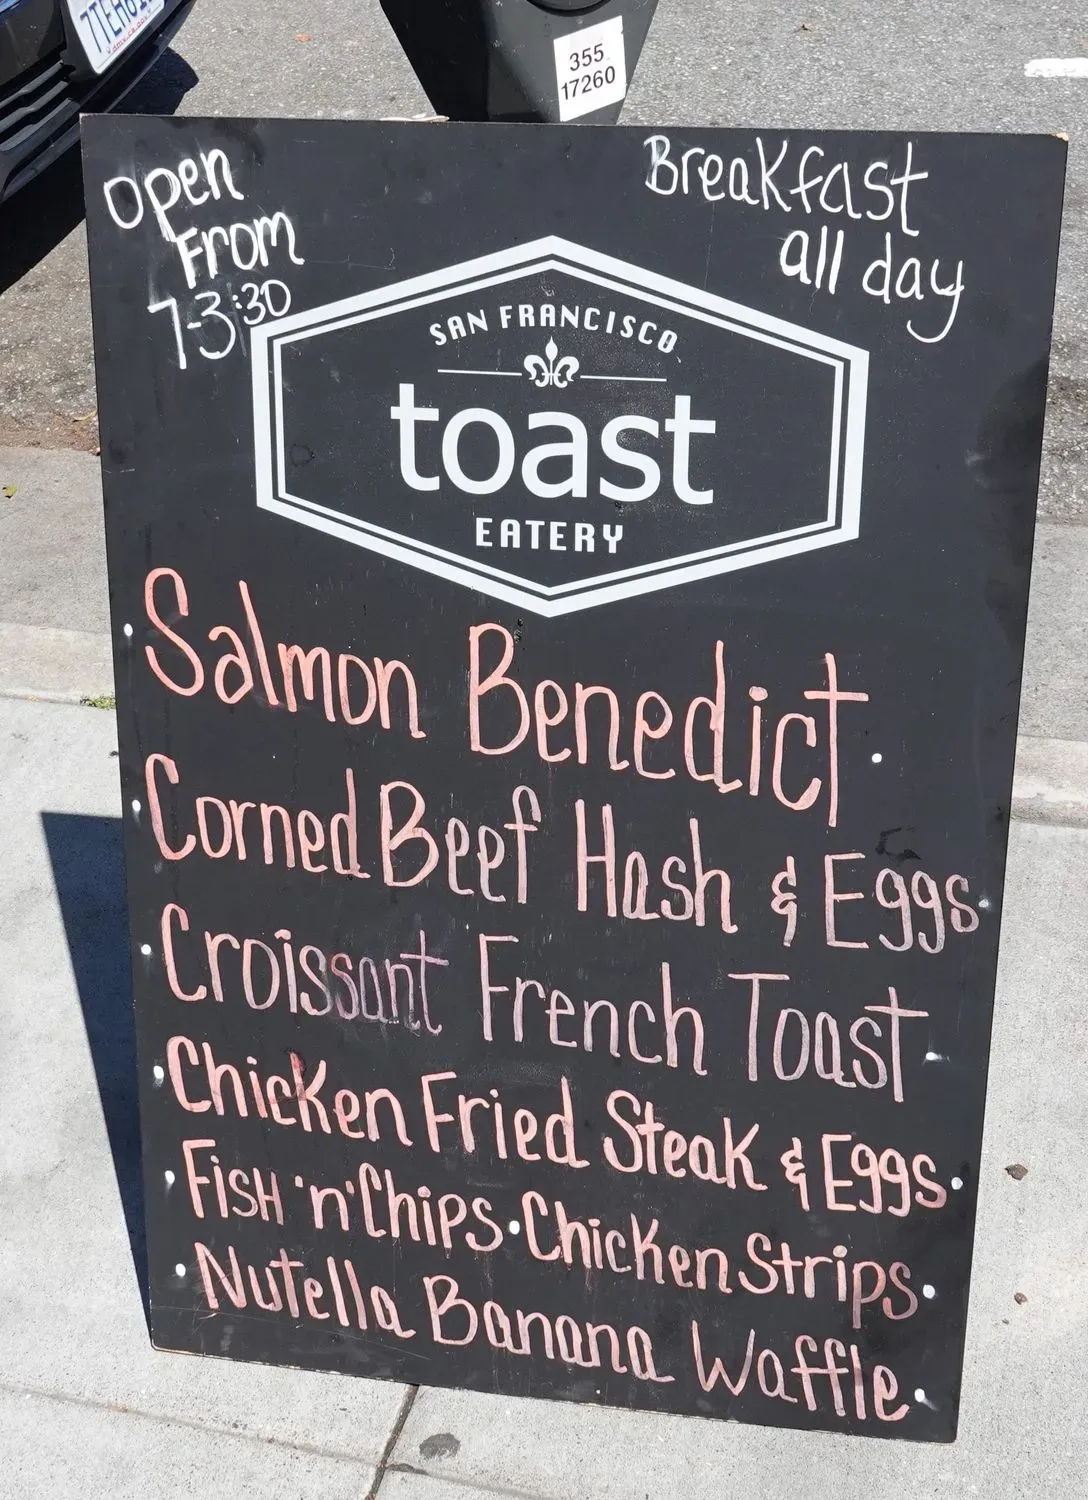 355
17260
open
From
7-3:30
Breakfast
all day
SAN FRANCISCO
toast
EATERY
Salmon Benedict
Corned Beef Hash & Eggs
Croissant French Toast
Chicken Fried Steak & Eggs
Fish 'n' Chips • Chicken Strips
Nutella Banana Waffle